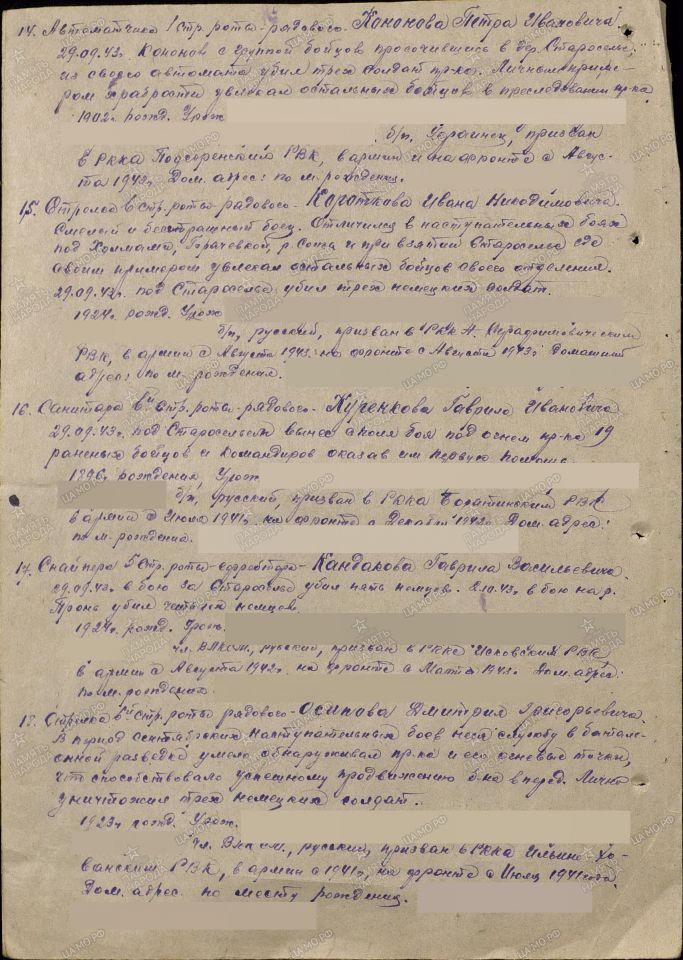 14. Автоматчика 1 стр. роты- рядового- Кононова Петра Ивановича
29.09.43г. Кононов с группой бойцов просочившись в дер. Староселье,
из своего автомата убил трех солдат пр-ка. Личным приме-
ром храбрости увлекал остальных бойцов в преследовании пр-ка
1902г. рожд. Урож
б/п, Украинец, призван
в РККА РВК, в армии и на фронте с Авгус-
та 1943г. Дом. адрес: по м. рождения.
15. Стрелка 6 стр. роты- рядового- Короткова Ивана Никодимовича.
Смелый и бесстрашный боец. Отличился в наступательных боях
под Холмами, р. Сожа и при взятии Староселье где
своим примером увлекал остальных бойцов своего отделения.
29.09.43г. под Староселье убил трех немецких солдат.
1924г. рожд. Урож
б/п, русский, призван в РККА Серафимовическим
РВК, в армии с Августа 1943г. на фронте с Августа 1943г. Домашний
адрес: по м. рождения.
16. Санитара 6й стр. роты- рядового- Кученкова Гаврила Ивановича
29.09.43г. под Старосельем вынес с поля боя под огнем пр-ка 19
раненых бойцов и командиров оказав им первую помощь.
1896г. рождения, Урож
б/п, русский, призван в РККА РВК
в армии с Июля 1941г. на фронте с Декабря 1942г. Дом. адрес:
по м. рождения.
17. Снайпера 5 стр. роты- ефрейтора- Кандакова Гаврила Васильевича.
29.09.43г. в бою за Староселье убил пять немцев. 2.10.43г. в бою на р.
Проня убил четырех немцев.
1924г. рожд. Урож.
чл. ВЛКСМ, русский, призван в РККА РВК
в армии с Августа 1942г. на фронте с Марта 1943г. Дом. адрес:
по м. рождения.
18. Стрелка 6й стр. роты рядового- Осипова Дмитрия Григорьевича.
В период сентябрьских наступательных боев неся службу в баталь-
онной разведке умело обнаруживал пр-ка и его огневые точки,
что способствовало успешному продвижению б-на вперед. Лично
уничтожил трех немецких солдат.
1923г. рожд. Урож.
чл. ВЛКСМ, русский, призван в РККА Ильино-Хо-
ванским РВК, в армии с 1941г, на фронте с Июля 1941 года.
Дом. адрес. по месту рождения.